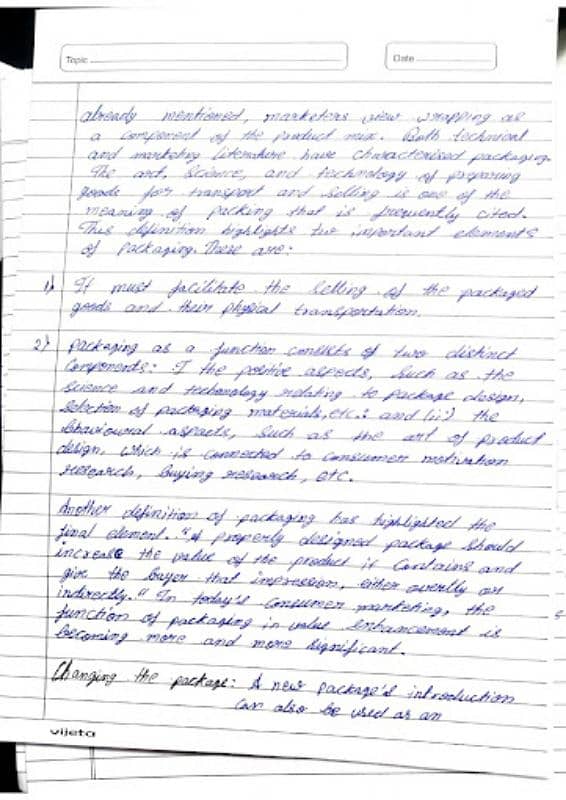 Topic
Date
already mentioned, marketers view wrapping as
a component of the product mix. Both technical
and marketing literature have characterised packaging.
The art, science, and technology of preparing
goods for transport and selling is one of the
meaning of packing that is frequently cited.
This definition highlights two important elements
of packaging. There are:
1) It must facilitate the selling of the packaged
goods and their physical transportation.
2) Packaging as a function consists of two distinct
Components: I the positive aspects, such as the
science and technology relating to package design,
selection of packaging materials, etc.: and (ii) the
behavioural aspects, such as the art of product
design, which is connected to consumer motivation
research, buying research, etc.
Another definition of packaging has highlighted the
final element. "A properly designed package should
increase the value of the product it contains and
give the buyer that impression, either overtly or
indirectly." In today's consumer marketing, the
function of packaging in value enhancement is
becoming more and more significant.
Changing the package: A new package's introduction
Can also be used as an
vijeta